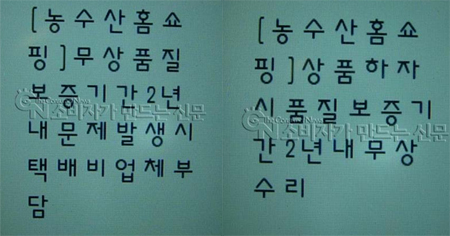 [농수산홈쇼
핑]무상품질
보증기간2년
내문제발생시
택배비업체부
담
[농수산홈쇼
핑]상품하자
시품질보증기
간2년내무상
수리
소비자가 만드는 신문
소비자가 만드는 신문